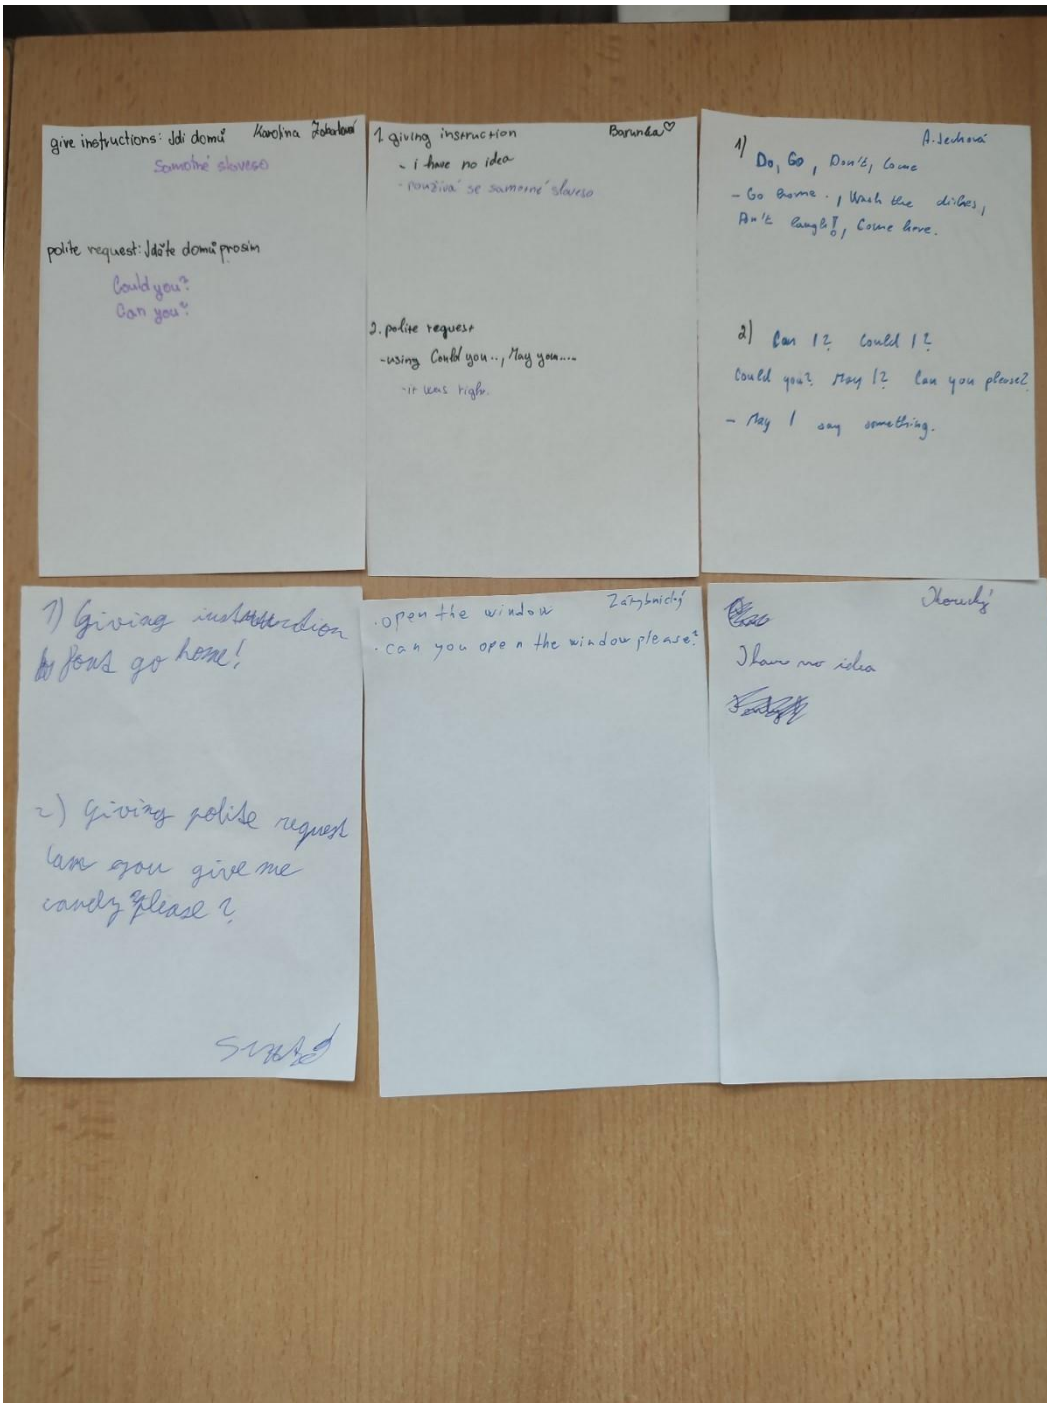 give instructions: Jdi domů Karolína
Samotné sloveso
polite request: Jděte domů prosím
Could you?
Can you?
1. giving instruction Barunka♡
- i have no idea
- používá se samotné sloveso
2. polite request
- using Could you.., May you....
- it was right.
1) A. Jechová
Do, Go, Don't, Come
- Go home., Wash the dishes,
Don't laugh!, Come here.
2) Can I? Could I?
Could you? May I? Can you please?
- May I say something.
1) Giving instruction
go home!
2) Giving polite request
Can you give me
candy please?
· open the window Zárybnický
· can you open the window please?
I have no idea